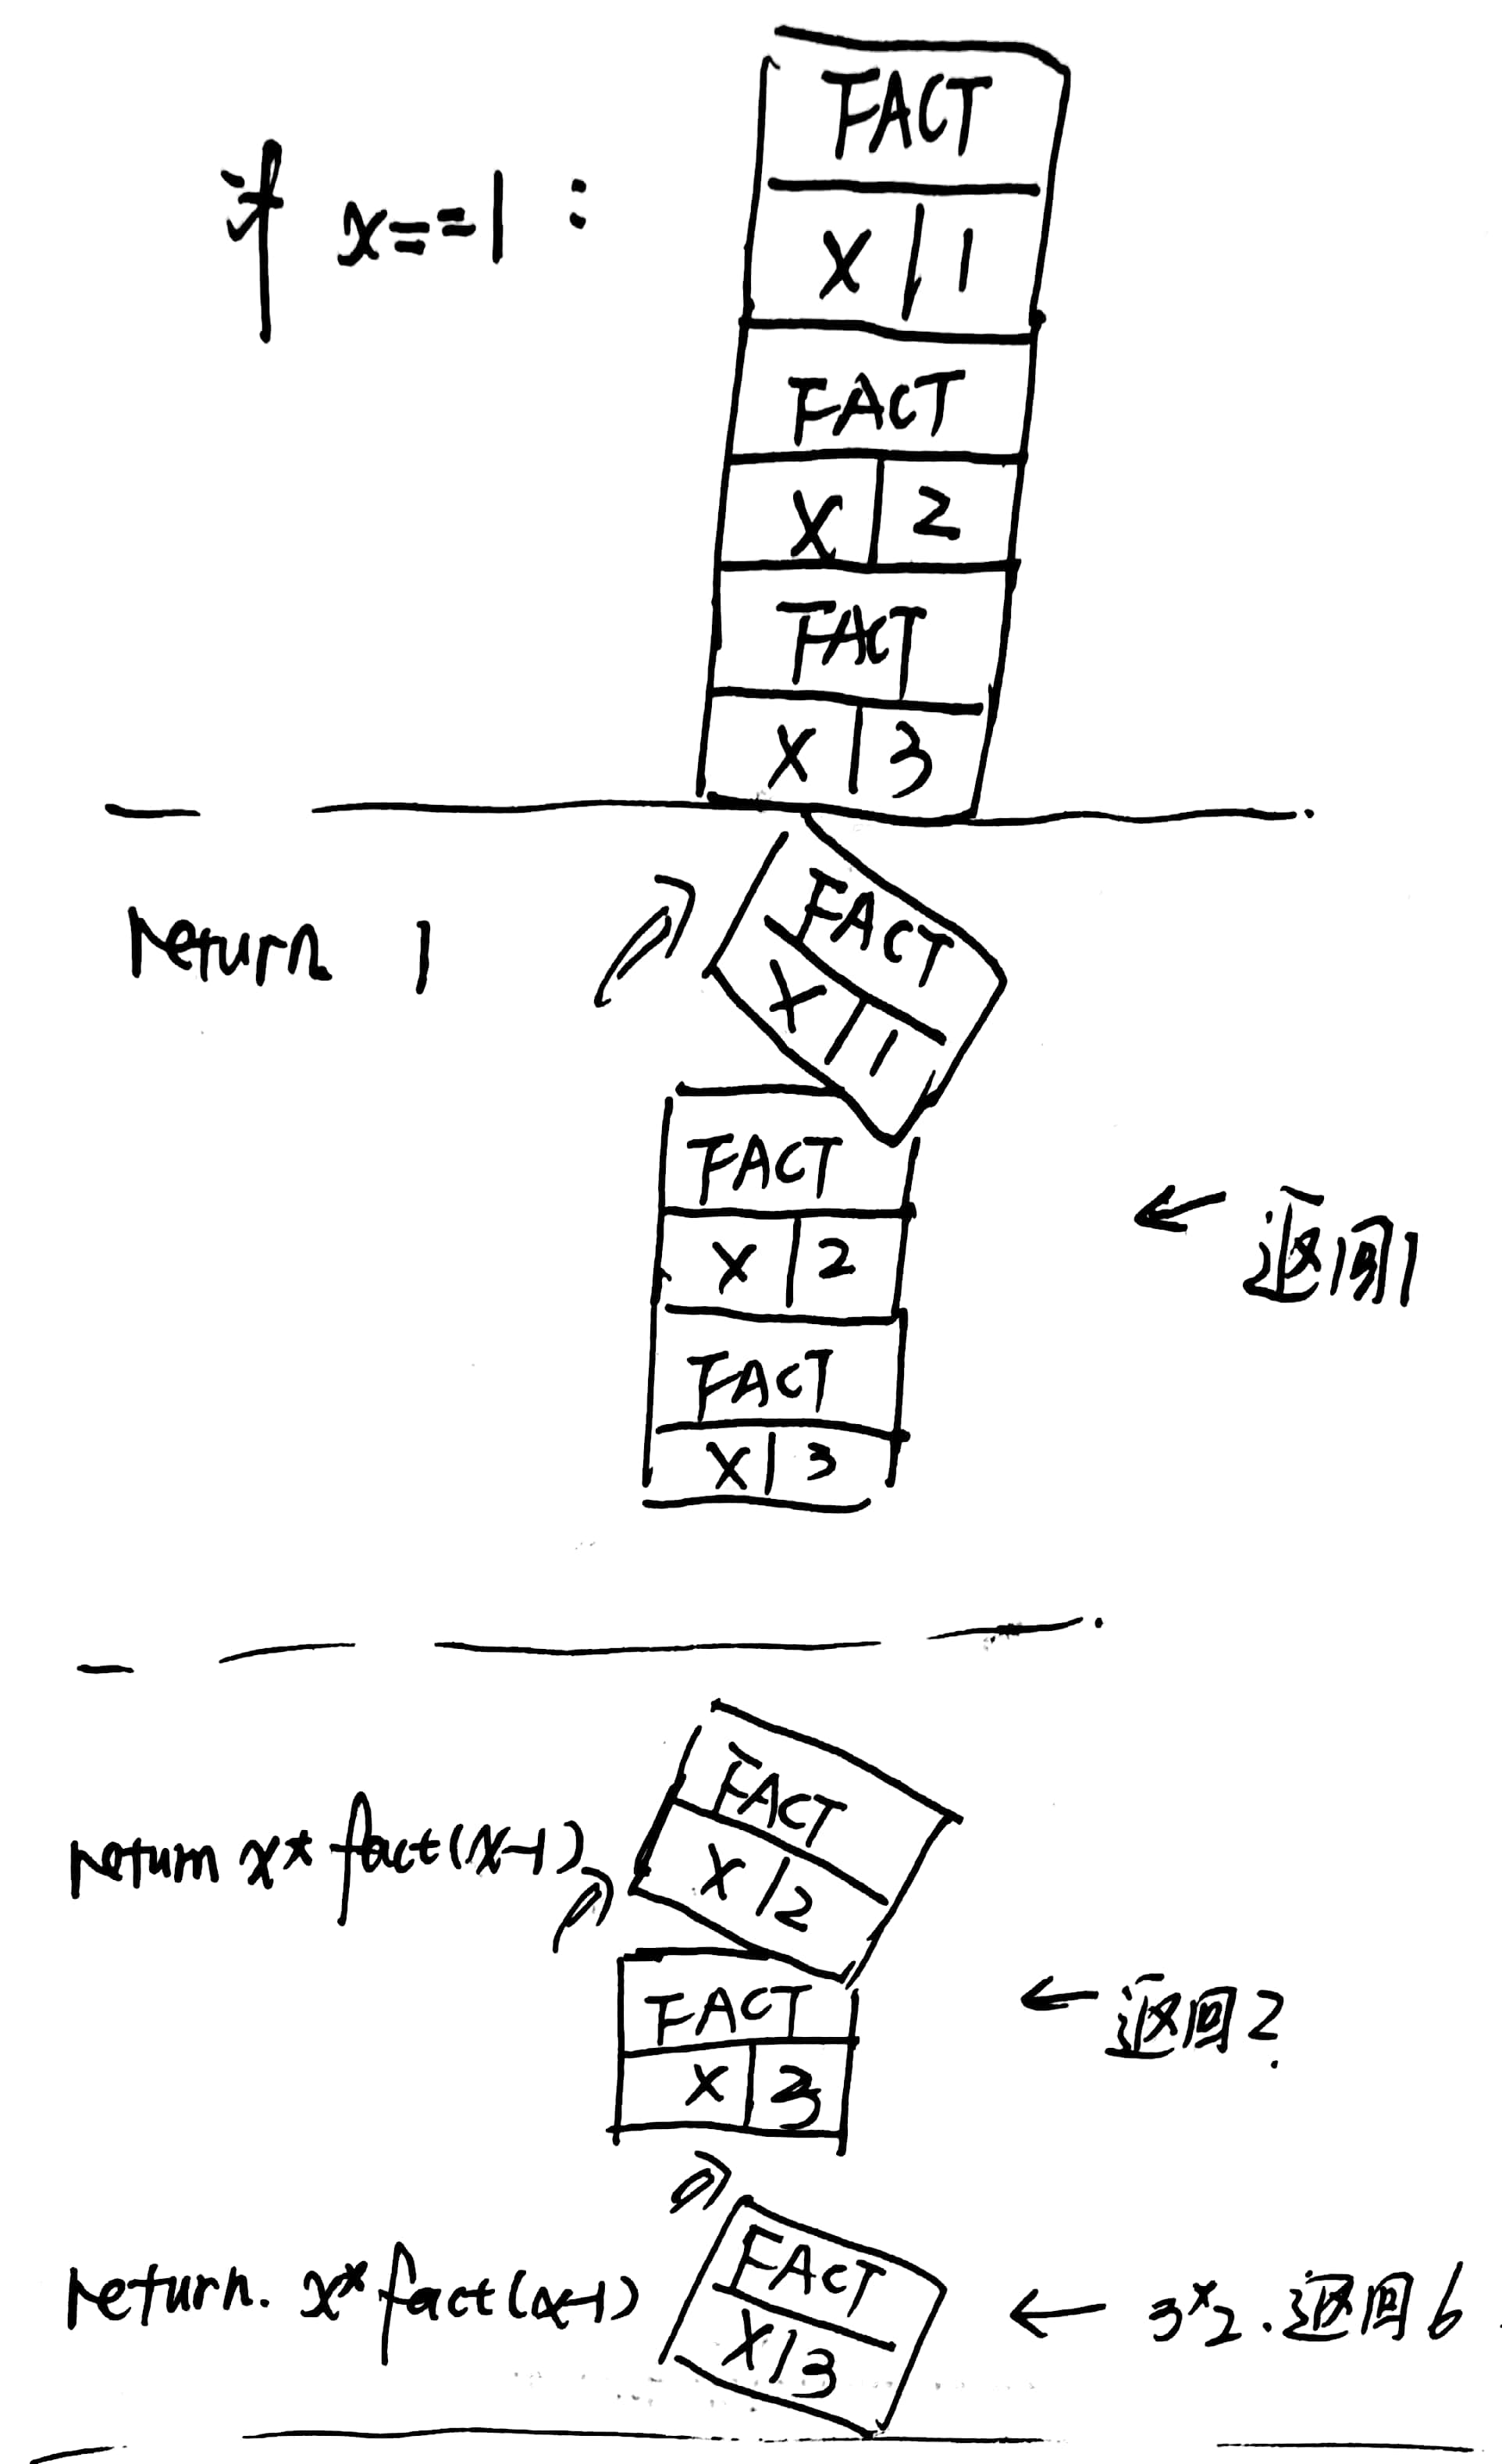 FACT
if x==1:
X 1
FACT
X 2
FACT
X 3
return 1
FACT
X 1
FACT
X 2
返回1
FACT
X 3
return x*fact(x-1)
FACT
X 2
FACT
返回2
X 3
return. x*fact(x-1)
FACT
X 3
3*2.返回6.